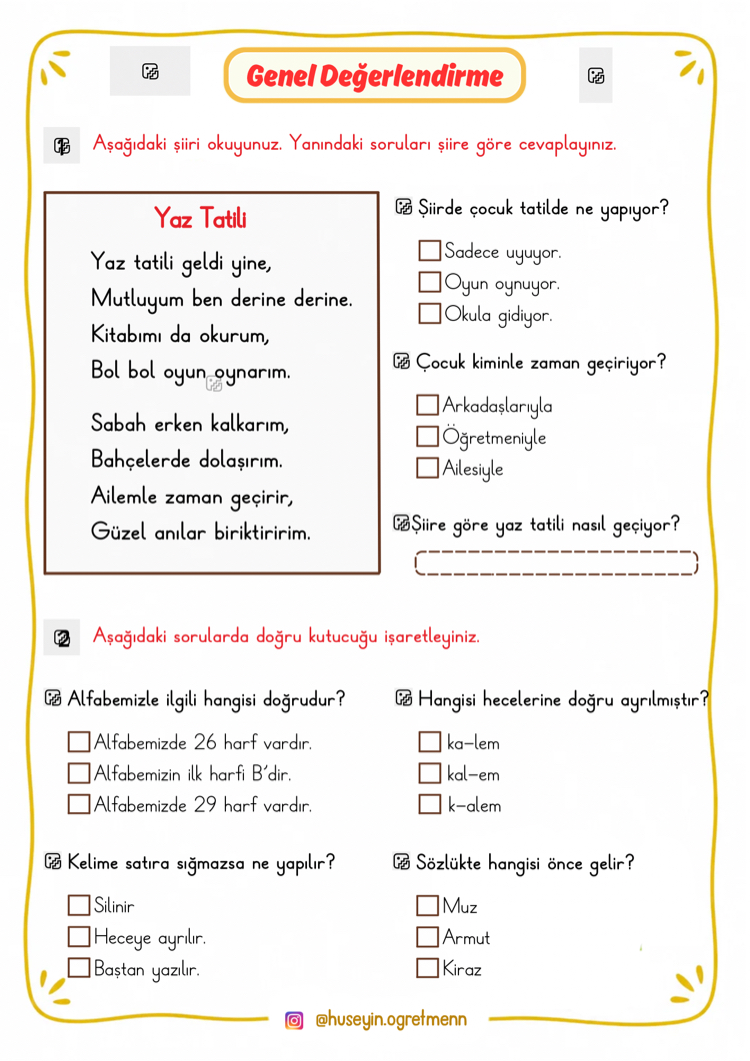 Genel Değerlendirme
Aşağıdaki şiiri okuyunuz. Yanındaki soruları şiire göre cevaplayınız.
Yaz Tatili
Yaz tatili geldi yine,
Mutluyum ben derine derine.
Kitabımı da okurum,
Bol bol oyun oynarım.
Sabah erken kalkarım,
Bahçelerde dolaşırım.
Ailemle zaman geçirir,
Güzel anılar biriktiririm.
Şiirde çocuk tatilde ne yapıyor?
Sadece uyuyor.
Oyun oynuyor.
Okula gidiyor.
Çocuk kiminle zaman geçiriyor?
Arkadaşlarıyla
Öğretmeniyle
Ailesiyle
Şiire göre yaz tatili nasıl geçiyor?
2
Aşağıdaki sorularda doğru kutucuğu işaretleyiniz.
Alfabemizle ilgili hangisi doğrudur?
Alfabemizde 26 harf vardır.
Alfabemizin ilk harfi B'dir.
Alfabemizde 29 harf vardır.
Hangisi hecelerine doğru ayrılmıştır?
ka-lem
kal-em
k-alem
Kelime satıra sığmazsa ne yapılır?
Silinir
Heceye ayrılır.
Baştan yazılır.
Sözlükte hangisi önce gelir?
Muz
Armut
Kiraz
@huseyin.ogretmenn